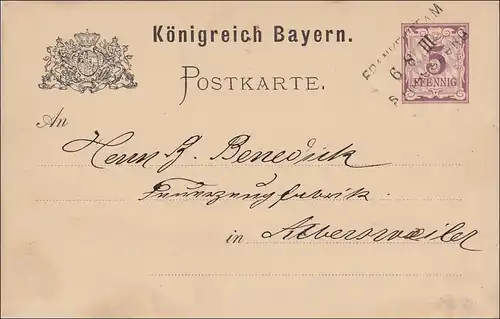 Königreich Bayern.
POSTKARTE.
5
PFENNIG
6 8 III
An
Herrn G. Benedick
Feuerzeugfabrik
in Albersweiler